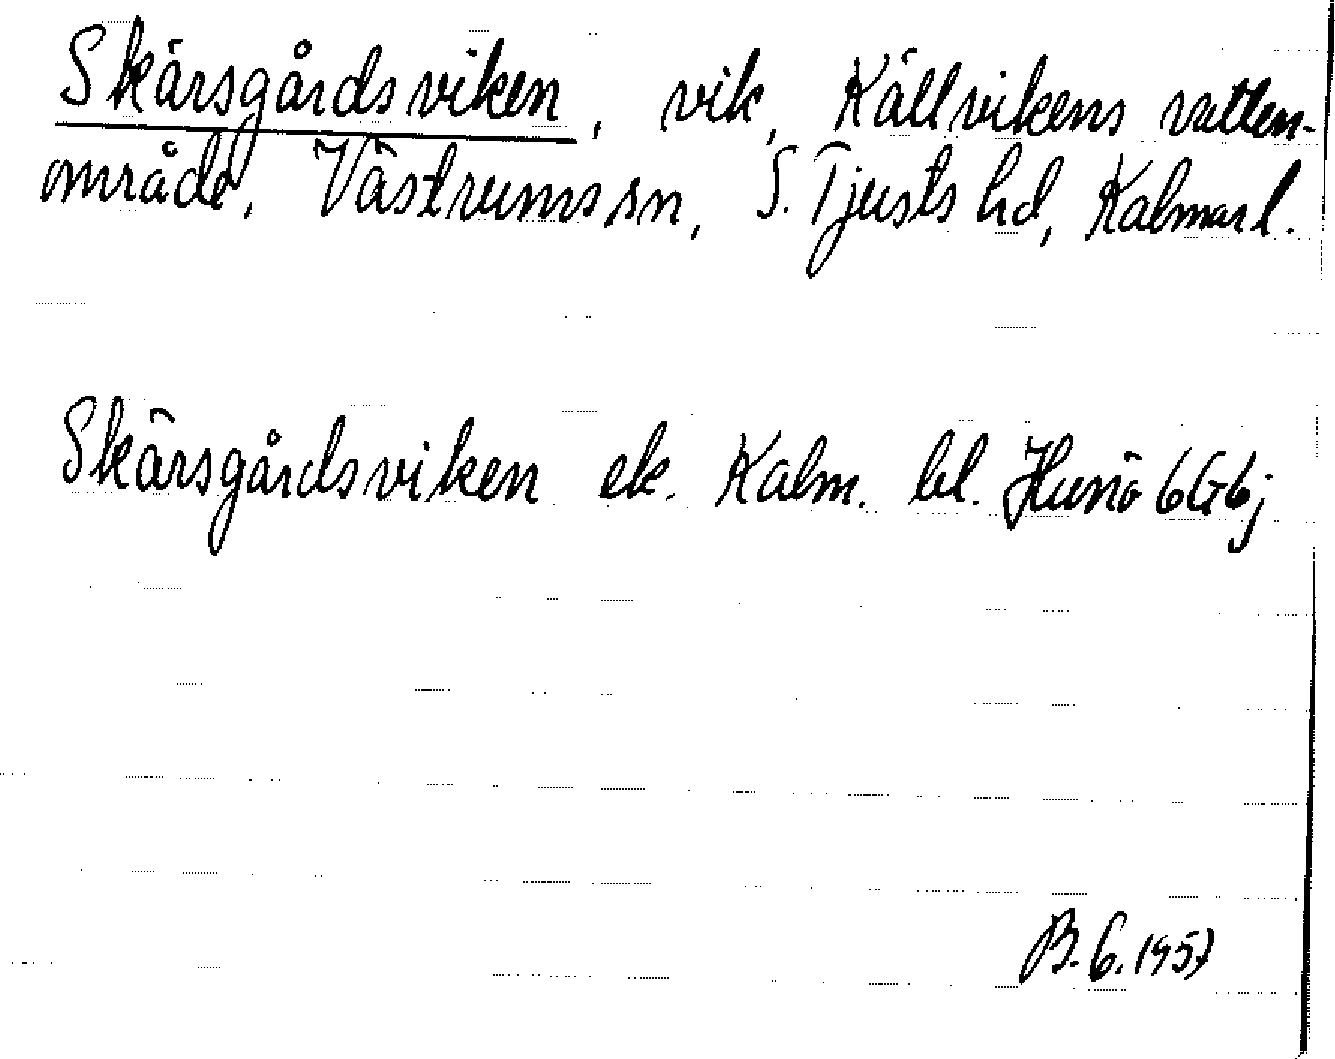 Skärsgårdsviken, vik, Källvikens vatten-
område, Västrums sn, S. Tjusts hd, Kalmar l.
Skärsgårdsviken ek. Kalm. bl. Hunö 6G6j
B. G. 1957